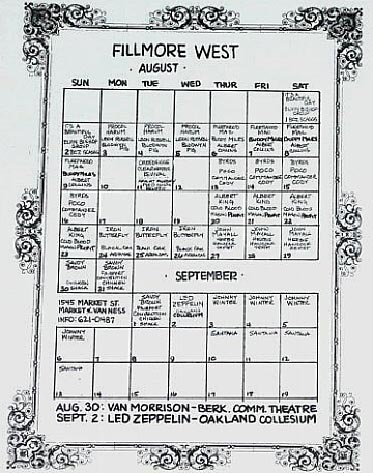 FILLMORE WEST
· AUGUST ·
SUN MON TUE WED THUR FRI SAT
IT'S A
BEAUTIFUL
DAY
ELVIN BISHOP
GROUP
1 BOZ SCAGGS
IT'S A
BEAUTIFUL
DAY
ELVIN BISHOP
GROUP
2 BOZ SCAGGS
PROCOL
HARUM
LEON RUSSELL
BLODWYN
3 PIG
PROCOL
HARUM
LEON RUSSELL
BLODWYN
4 PIG
PROCOL
HARUM
LEON RUSSELL
BLODWYN
5 PIG
FLEETWOOD
MAC
BUDDY MILES
ALBERT
COLLINS
6
FLEETWOOD
MAC
BUDDY MILES
ALBERT
COLLINS
7
FLEETWOOD
MAC
BUDDY MILES
ALBERT
8 COLLINS
FLEETWOOD
MAC
BUDDY MILES
ALBERT
9 COLLINS
10
CREEDENCE
CLEARWATER
REVIVAL
11
12
BYRDS
POCO
COMMANDER
CODY
13
BYRDS
POCO
COMMANDER
CODY
14
BYRDS
POCO
COMMANDER
CODY
15
BYRDS
POCO
COMMANDER
CODY
16
17
18
19
ALBERT
KING
COLD BLOOD
MASON PROFFIT
20
ALBERT
KING
COLD BLOOD
MASON PROFFIT
21
ALBERT
KING
COLD BLOOD
MASON PROFFIT
22
ALBERT
KING
COLD BLOOD
MASON PROFFIT
23
IRON
BUTTERFLY
BLACK OAK
24 ARKANSAS
IRON
BUTTERFLY
BLACK OAK
25 ARKANSAS
IRON
BUTTERFLY
BLACK OAK
26 ARKANSAS
JOHN
MAYALL
HERBIE
HANCOCK
27
JOHN
MAYALL
HERBIE
HANCOCK
28
JOHN
MAYALL
HERBIE
HANCOCK
29
SAVOY
BROWN
FAIRPORT
CONVENTION
CHICKEN
30 SHACK
SAVOY
BROWN
FAIRPORT
CONVENTION
CHICKEN
31 SHACK
· SEPTEMBER ·
1545 MARKET ST.
MARKET & VAN NESS
INFO: 621-0487
SAVOY
BROWN
FAIRPORT
CONVENTION
CHICKEN
1 SHACK
LED
ZEPPELIN
OAKLAND
COLLESIUM
2
JOHNNY
WINTER
3
JOHNNY
WINTER
4
JOHNNY
WINTER
5
JOHNNY
WINTER
6
7
8
9
SANTANA
10
SANTANA
11
SANTANA
12
SANTANA
13
14
15
16
17
18
19
AUG. 30: VAN MORRISON - BERK. COMM. THEATRE
SEPT. 2: LED ZEPPELIN - OAKLAND COLLESIUM